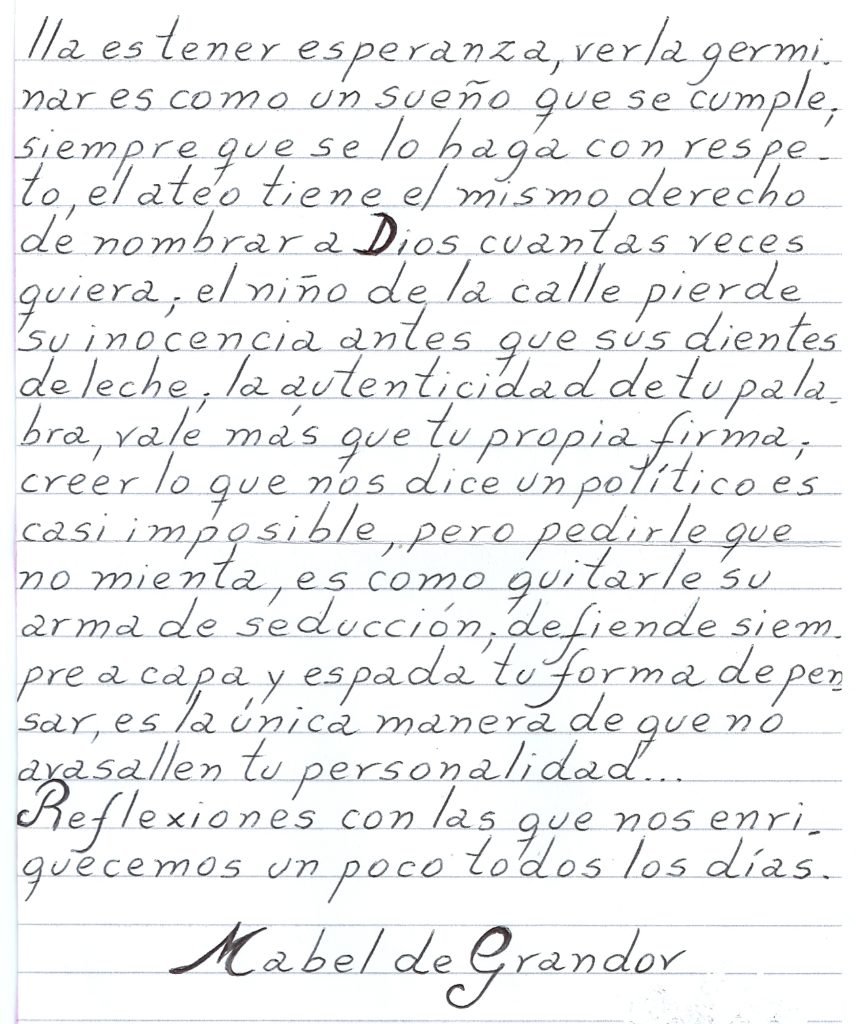 lla es tener esperanza, verla germi-
nar es como un sueño que se cumple;
siempre que se lo haga con respe-
to, el ateo tiene el mismo derecho
de nombrar a Dios cuantas veces
quiera; el niño de la calle pierde
su inocencia antes que sus dientes
de leche; la autenticidad de tu pala-
bra, vale más que tu propia firma;
creer lo que nos dice un político es
casi imposible, pero pedirle que
no mienta, es como quitarle su
arma de seducción; defiende siem-
pre a capa y espada tu forma de pen
sar, es la única manera de que no
avasallen tu personalidad...
Reflexiones con las que nos enri-
quecemos un poco todos los días.
Mabel de Grandov